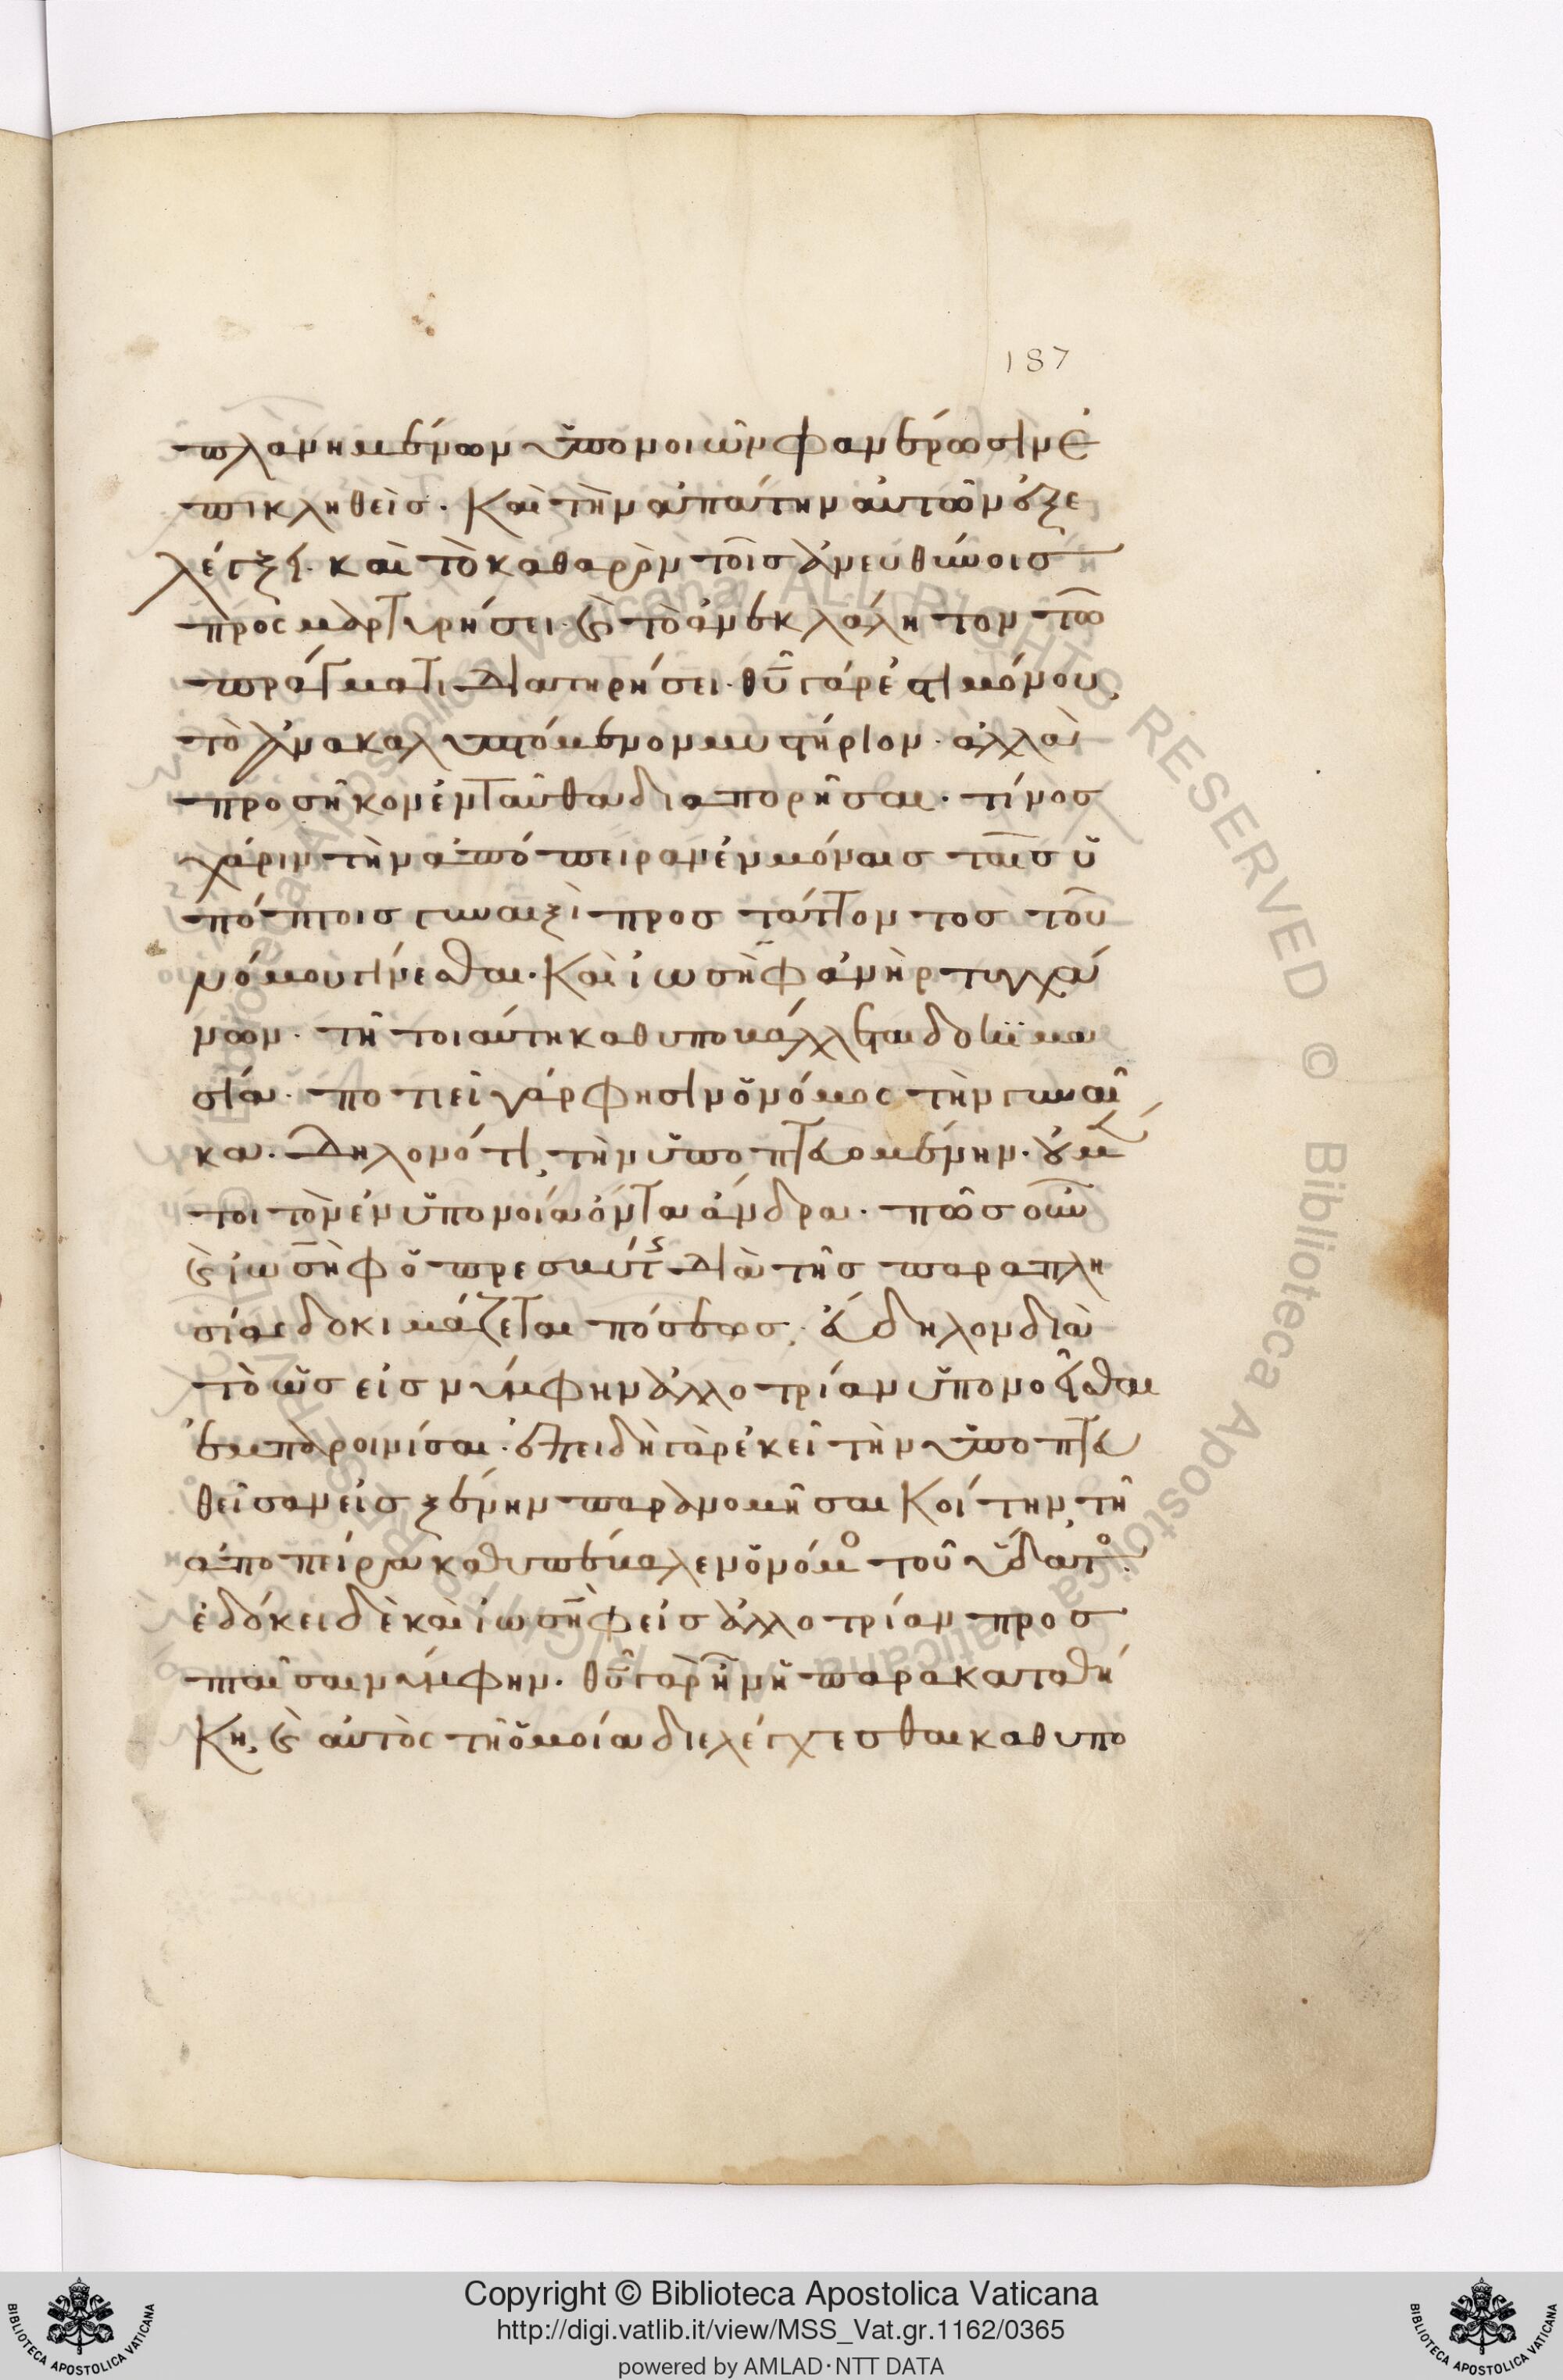 187
πλανημένων ὑπονοιῶν φανέρωσιν ἐ
πικληθεὶς. Καὶ τὴν ἀπάτην αὐτῶν ἐξε
λέγξει. καὶ τὸ καθαρὸν τοῖς ἀνευθύνοις
προσμαρτυρήσει. καὶ τὸ ἀνεκλάλητον τῶ
πράγματι διατηρήσει. θῦ γάρ ἐστι μόνου,
τὸ ἀνακαλυπτόμενον μυστήριον. ἀλλὰ
προσῆκον ἐνταῦθα διαπορῆσαι. τίνος
χάριν τὴν ἀπόπειραν ἐν μόναις ταῖς ὑ
πόπτοις γυναιξὶ προστάττοντος τοῦ
νόμου γίνεσθαι. Καὶ ἰωσὴφ ἀνὴρ τυγχά
νων. τῆ τοιαύτη καθυποβάλλεται δοκιμα
σία. ποτιεῖ γάρ φησιν ὁ νόμος τὴν γυναῖ
κα. δηλονότι, τὴν ὑποπτευομένην. οὐ μέν
τοι τὸν ἐν ὑπονοία ὄντα ἄνδρα. πῶς οὖν
καὶ ἰωσὴφ ὁ πρεσβύτης διὰ τῆς παραπλη
σίας δοκιμάζεται πόσεως, εὔδηλον διὰ
τὸ ὡς εἰς νύμφην ἀλλοτρίαν ὑπονοεῖσθαι
ἐμπαροινίσαι. ἐπειδὴ γὰρ ἐκεῖ τὴν ὑποπτευ
θεῖσαν εἰς ξένην παρανομῆσαι Κοίτην, τῆ
ἀποπείρα καθυπέβαλεν ὁ νόμος τοῦ ὕδατος.
ἐδόκει δὲ καὶ ἰωσὴφ εἰς ἀλλοτρίαν προσ
πταῖσαι νύμφην. θῦ γὰρ ἦν ἡ παρακαταθή
Κη, καὶ αὐτὸς τῆ ὁμοία διελέγχεσθαι καθυπο
Copyright © Biblioteca Apostolica Vaticana
http://digi.vatlib.it/view/MSS_Vat.gr.1162/0365
powered by AMLAD·NTT DATA